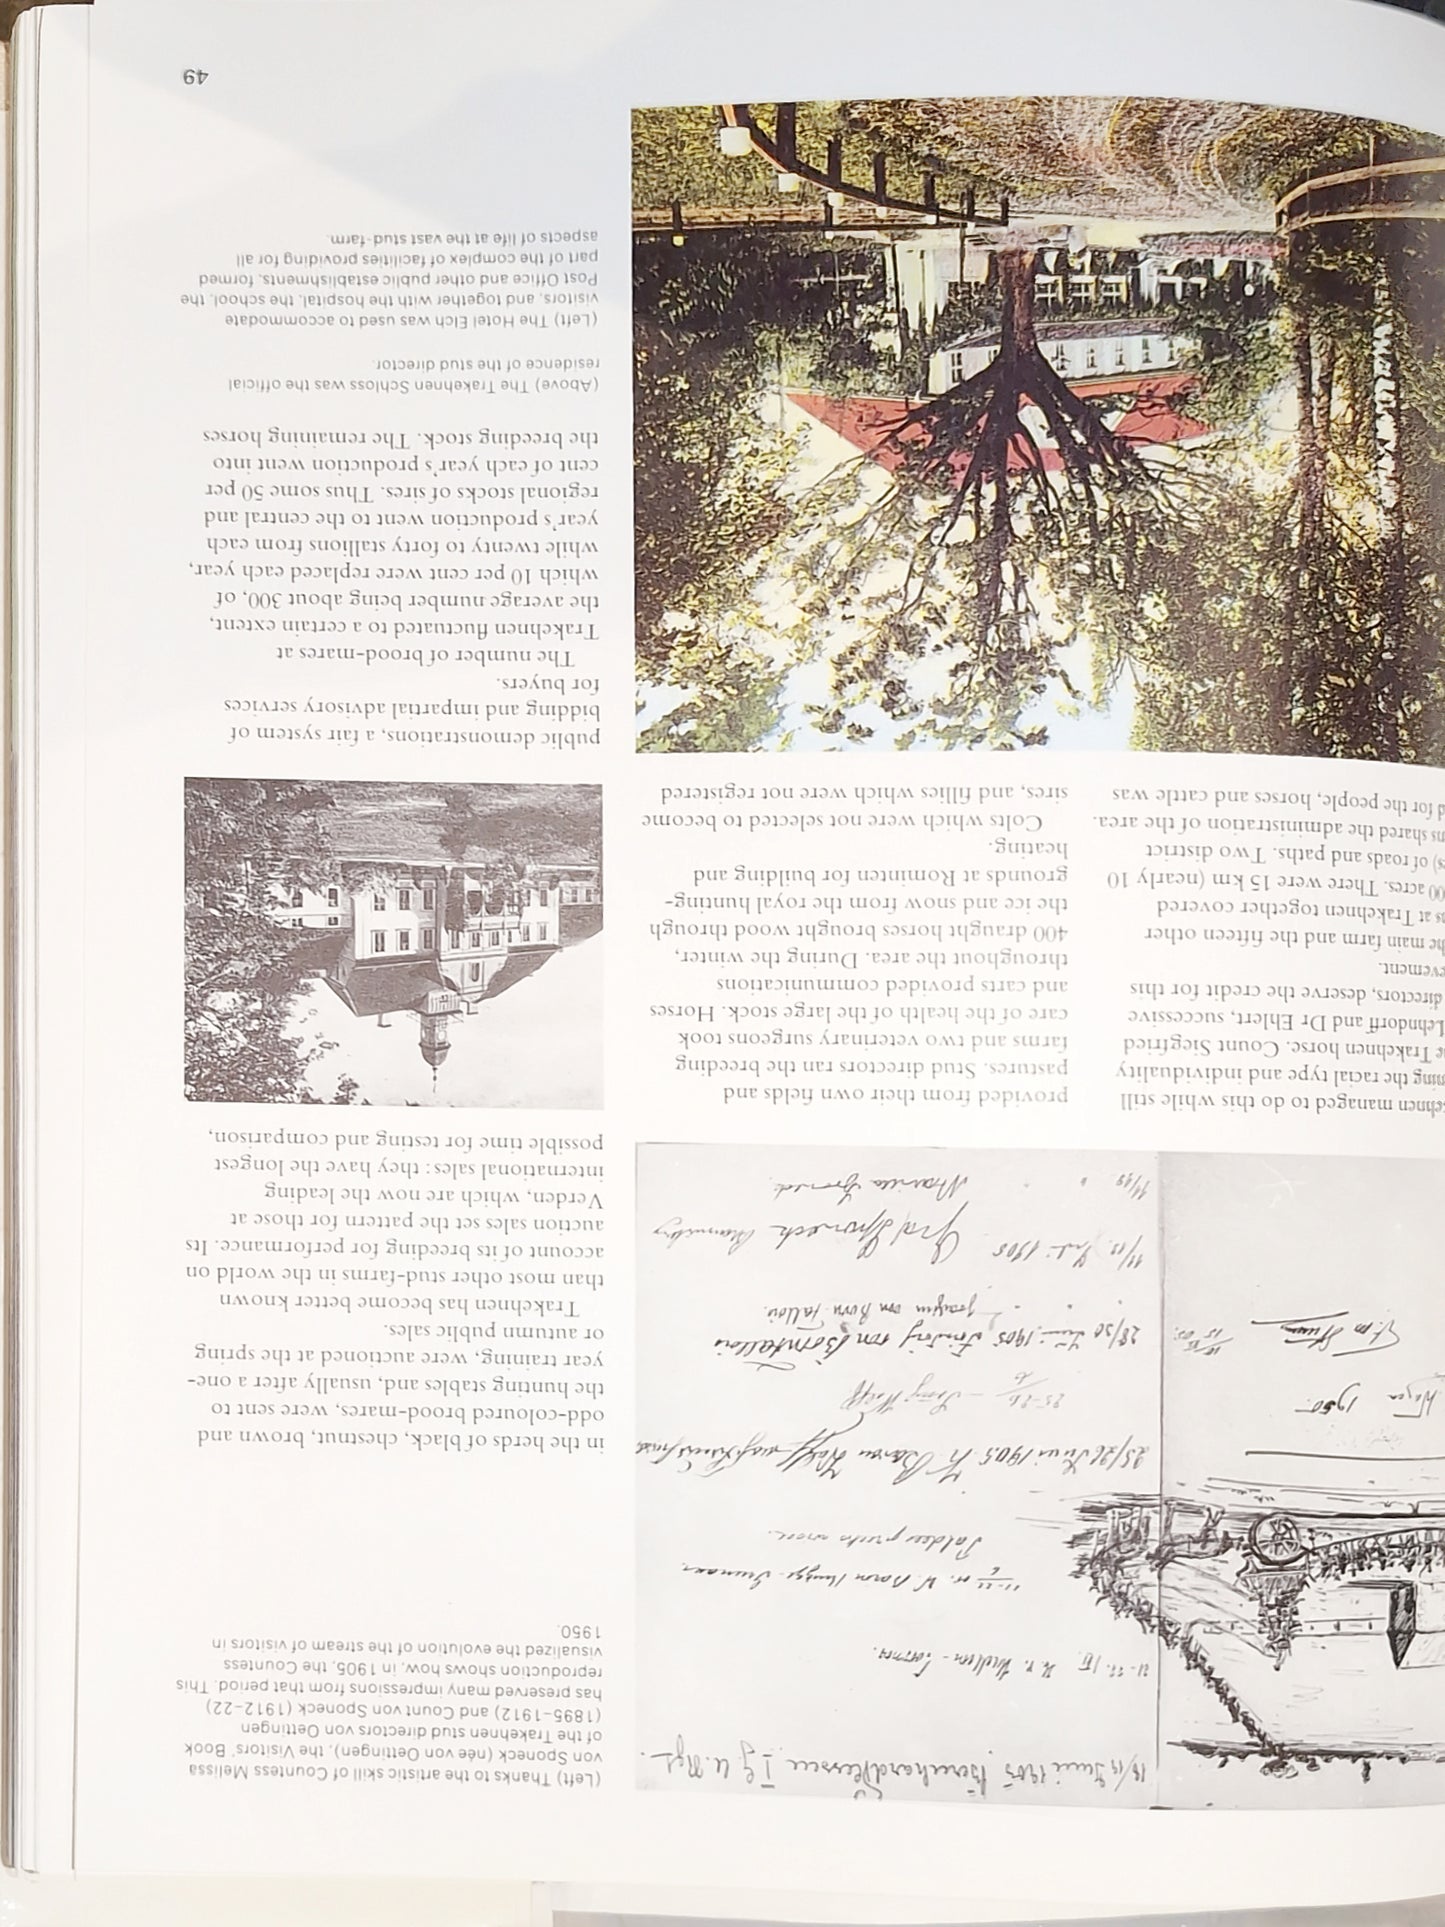 1950
28/30 Juni 1905
11/13. Juli 1905
managed to do this while still
the racial type and individuality
Trakehnen horse. Count Siegfried
Lehndorff and Dr Ehlert, successive
directors, deserve the credit for this
main farm and the fifteen other
at Trakehnen together covered
00 acres. There were 15 km (nearly 10
of roads and paths. Two district
shared the administration of the area.
for the people, horses and cattle was
provided from their own fields and
pastures. Stud directors ran the breeding
farms and two veterinary surgeons took
care of the health of the large stock. Horses
and carts provided communications
throughout the area. During the winter,
400 draught horses brought wood through
the ice and snow from the royal hunting-
grounds at Rominten for building and
heating.
Colts which were not selected to become
sires, and fillies which were not registered
(Left) Thanks to the artistic skill of Countess Melissa
von Sponeck (née von Oettingen), the Visitors' Book
of the Trakehnen stud directors von Oettingen
(1895–1912) and Count von Sponeck (1912–22)
has preserved many impressions from that period. This
reproduction shows how, in 1905, the Countess
visualized the evolution of the stream of visitors in
1950.
in the herds of black, chestnut, brown and
odd-coloured brood-mares, were sent to
the hunting stables and, usually after a one-
year training, were auctioned at the spring
or autumn public sales.
Trakehnen has become better known
than most other stud-farms in the world on
account of its breeding for performance. Its
auction sales set the pattern for those at
Verden, which are now the leading
international sales: they have the longest
possible time for testing and comparison,
public demonstrations, a fair system of
bidding and impartial advisory services
for buyers.
The number of brood-mares at
Trakehnen fluctuated to a certain extent,
the average number being about 300, of
which 10 per cent were replaced each year,
while twenty to forty stallions from each
year's production went to the central and
regional stocks of sires. Thus some 50 per
cent of each year's production went into
the breeding stock. The remaining horses
(Above) The Trakehnen Schloss was the official
residence of the stud director.
(Left) The Hotel Elch was used to accommodate
visitors, and together with the hospital, the school, the
Post Office and other public establishments, formed
part of the complex of facilities providing for all
aspects of life at the vast stud-farm.
49